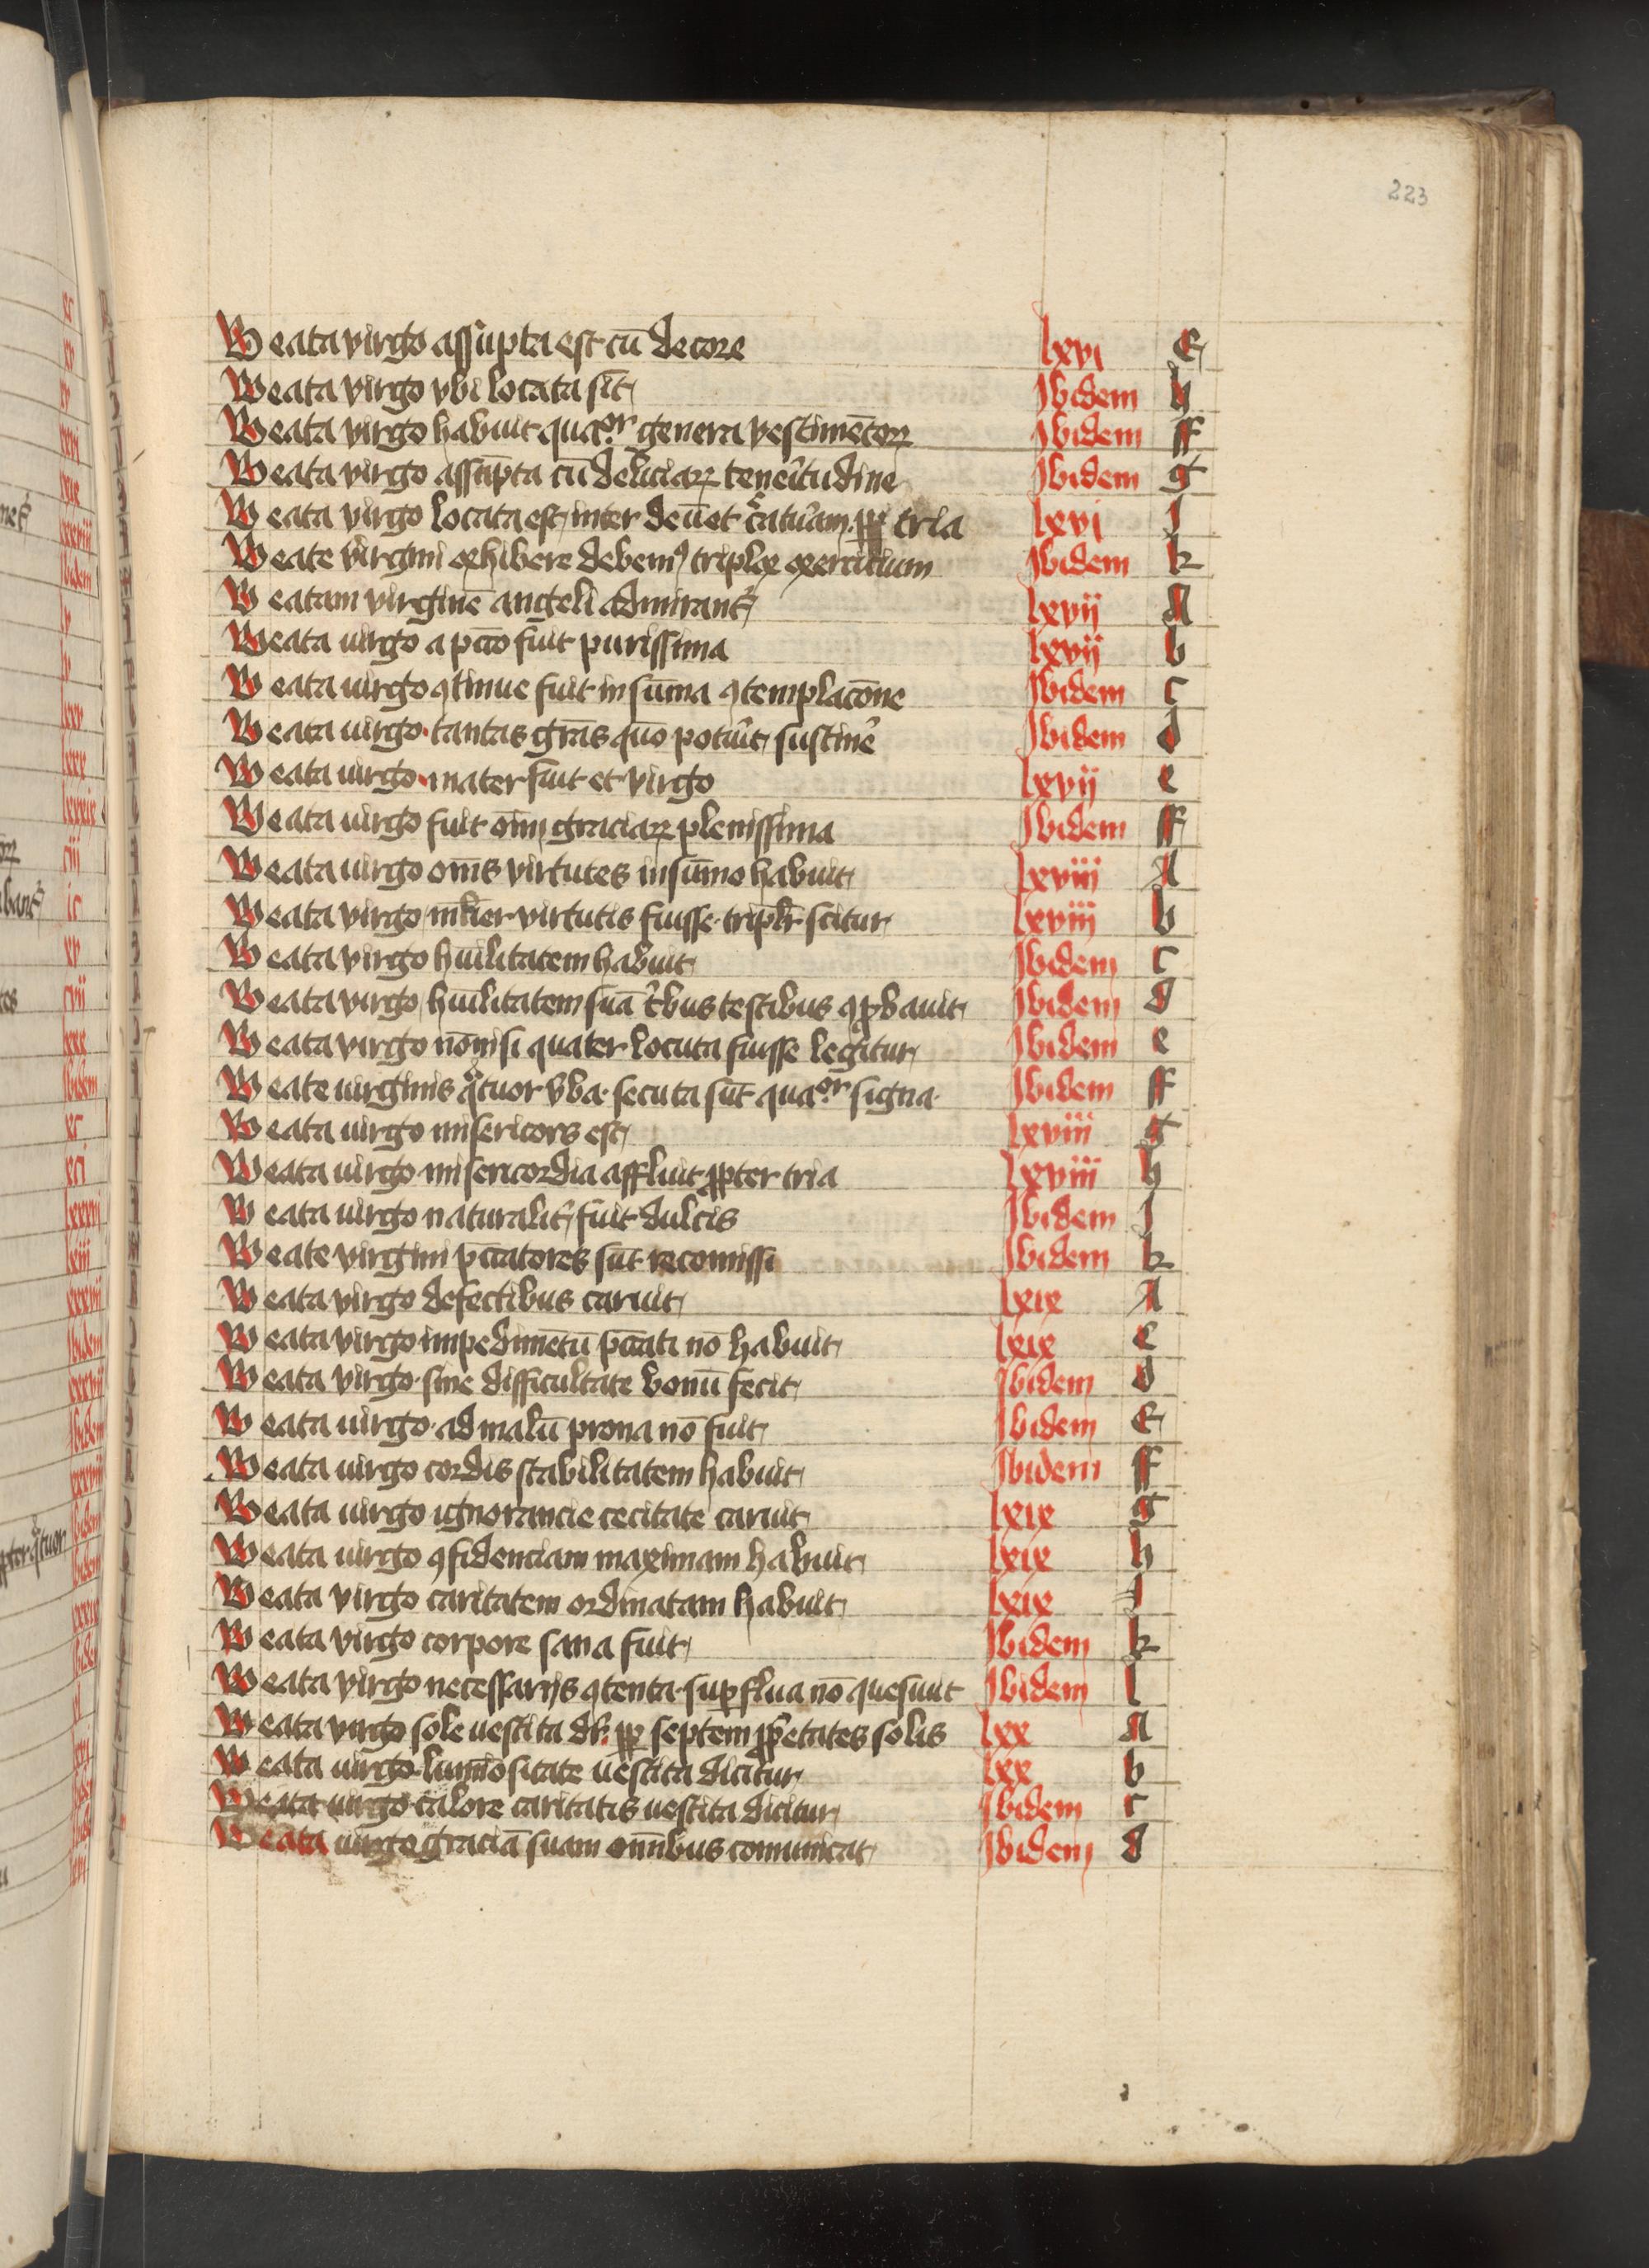 223
Beata virgo assūpta est cū decore lxvi e
Beata virgo vbi locata sit Ibidem h
Beata virgo habuit quaor genera vestimētoꝝ Ibidem ff
Beata virgo assūpta cū deliciaꝝ
Ibidem g
Beata virgo locata est inter deū et c̓atur̓am ꝓp tria lxvi J
Beate virgini exhibere debemꝰ triplex exercicium Ibidem k
Beatam virginē angeli admirant᷑ lxvii A
Beata uirgo a pctō fuit purissima lxvii b
Beata uirgo ꝯtinue fuit in sūma ꝯtemplacōne Ibidem c
Beata uirgo tantas grās quō potuit sustiner̓ Ibidem d
Beata uirgo mater fuit et virgo lxvij e
Beata uirgo fuit oīm graciaꝝ plenissima Ibidem ff
Beata uirgo omīs virtutes in sūmo habuit lxviii A
Beata virgo mĺier virtutis fuisse tripĺr scitur lxviii b
Beata virgo hūilitatem habuit Ibidem c
Beata virgo hūilitatem suā t̓bus testibus ꝯꝓbauit Ibidem d
Beata virgo nō nisi quater locuta fuisse legitur Ibidem e
Beate uirginis qͣtuor v̓ba secuta sūt quaor signa Ibidem ff
Beata uirgo misericors est lxviii g
Beata uirgo misericordia affluit ꝓpter tria lxviii h
Beata uirgo naturalit̓ fuit dulcis Ibidem J
Beate virgini pccatores sūt recomissi Ibidem k
Beata virgo defectibus caruit lxix A
Beata virgo impedimētū pccati nō habuit lxix c
Beata virgo sine difficultate bonū fecit Ibidem d
Beata uirgo ad malū prona nō fuit Ibidem e
Beata uirgo cordis stabilitatem habuit Ibidem ff
Beata uirgo ignorancie cecitate caruit lxix g
Beata uirgo ꝯfidenciam maximam habuit lxix h
Beata virgo caritatem ordinatam habuit lxix J
Beata virgo corpore sana fuit Ibidem k
Beata virgo necessarijs ꝯtenta suꝑflua nō quesiuit Ibidem l
Beata virgo sole uestita dr̄ ꝓp septem ꝓp̓etates solis lxx A
Beata uirgo luminositate uestita dicitur lxx b
Beata uirgo calore caritatis uestita dicitur Ibidem c
Beata uirgo graciā suam omībus comunicat Ibidem d